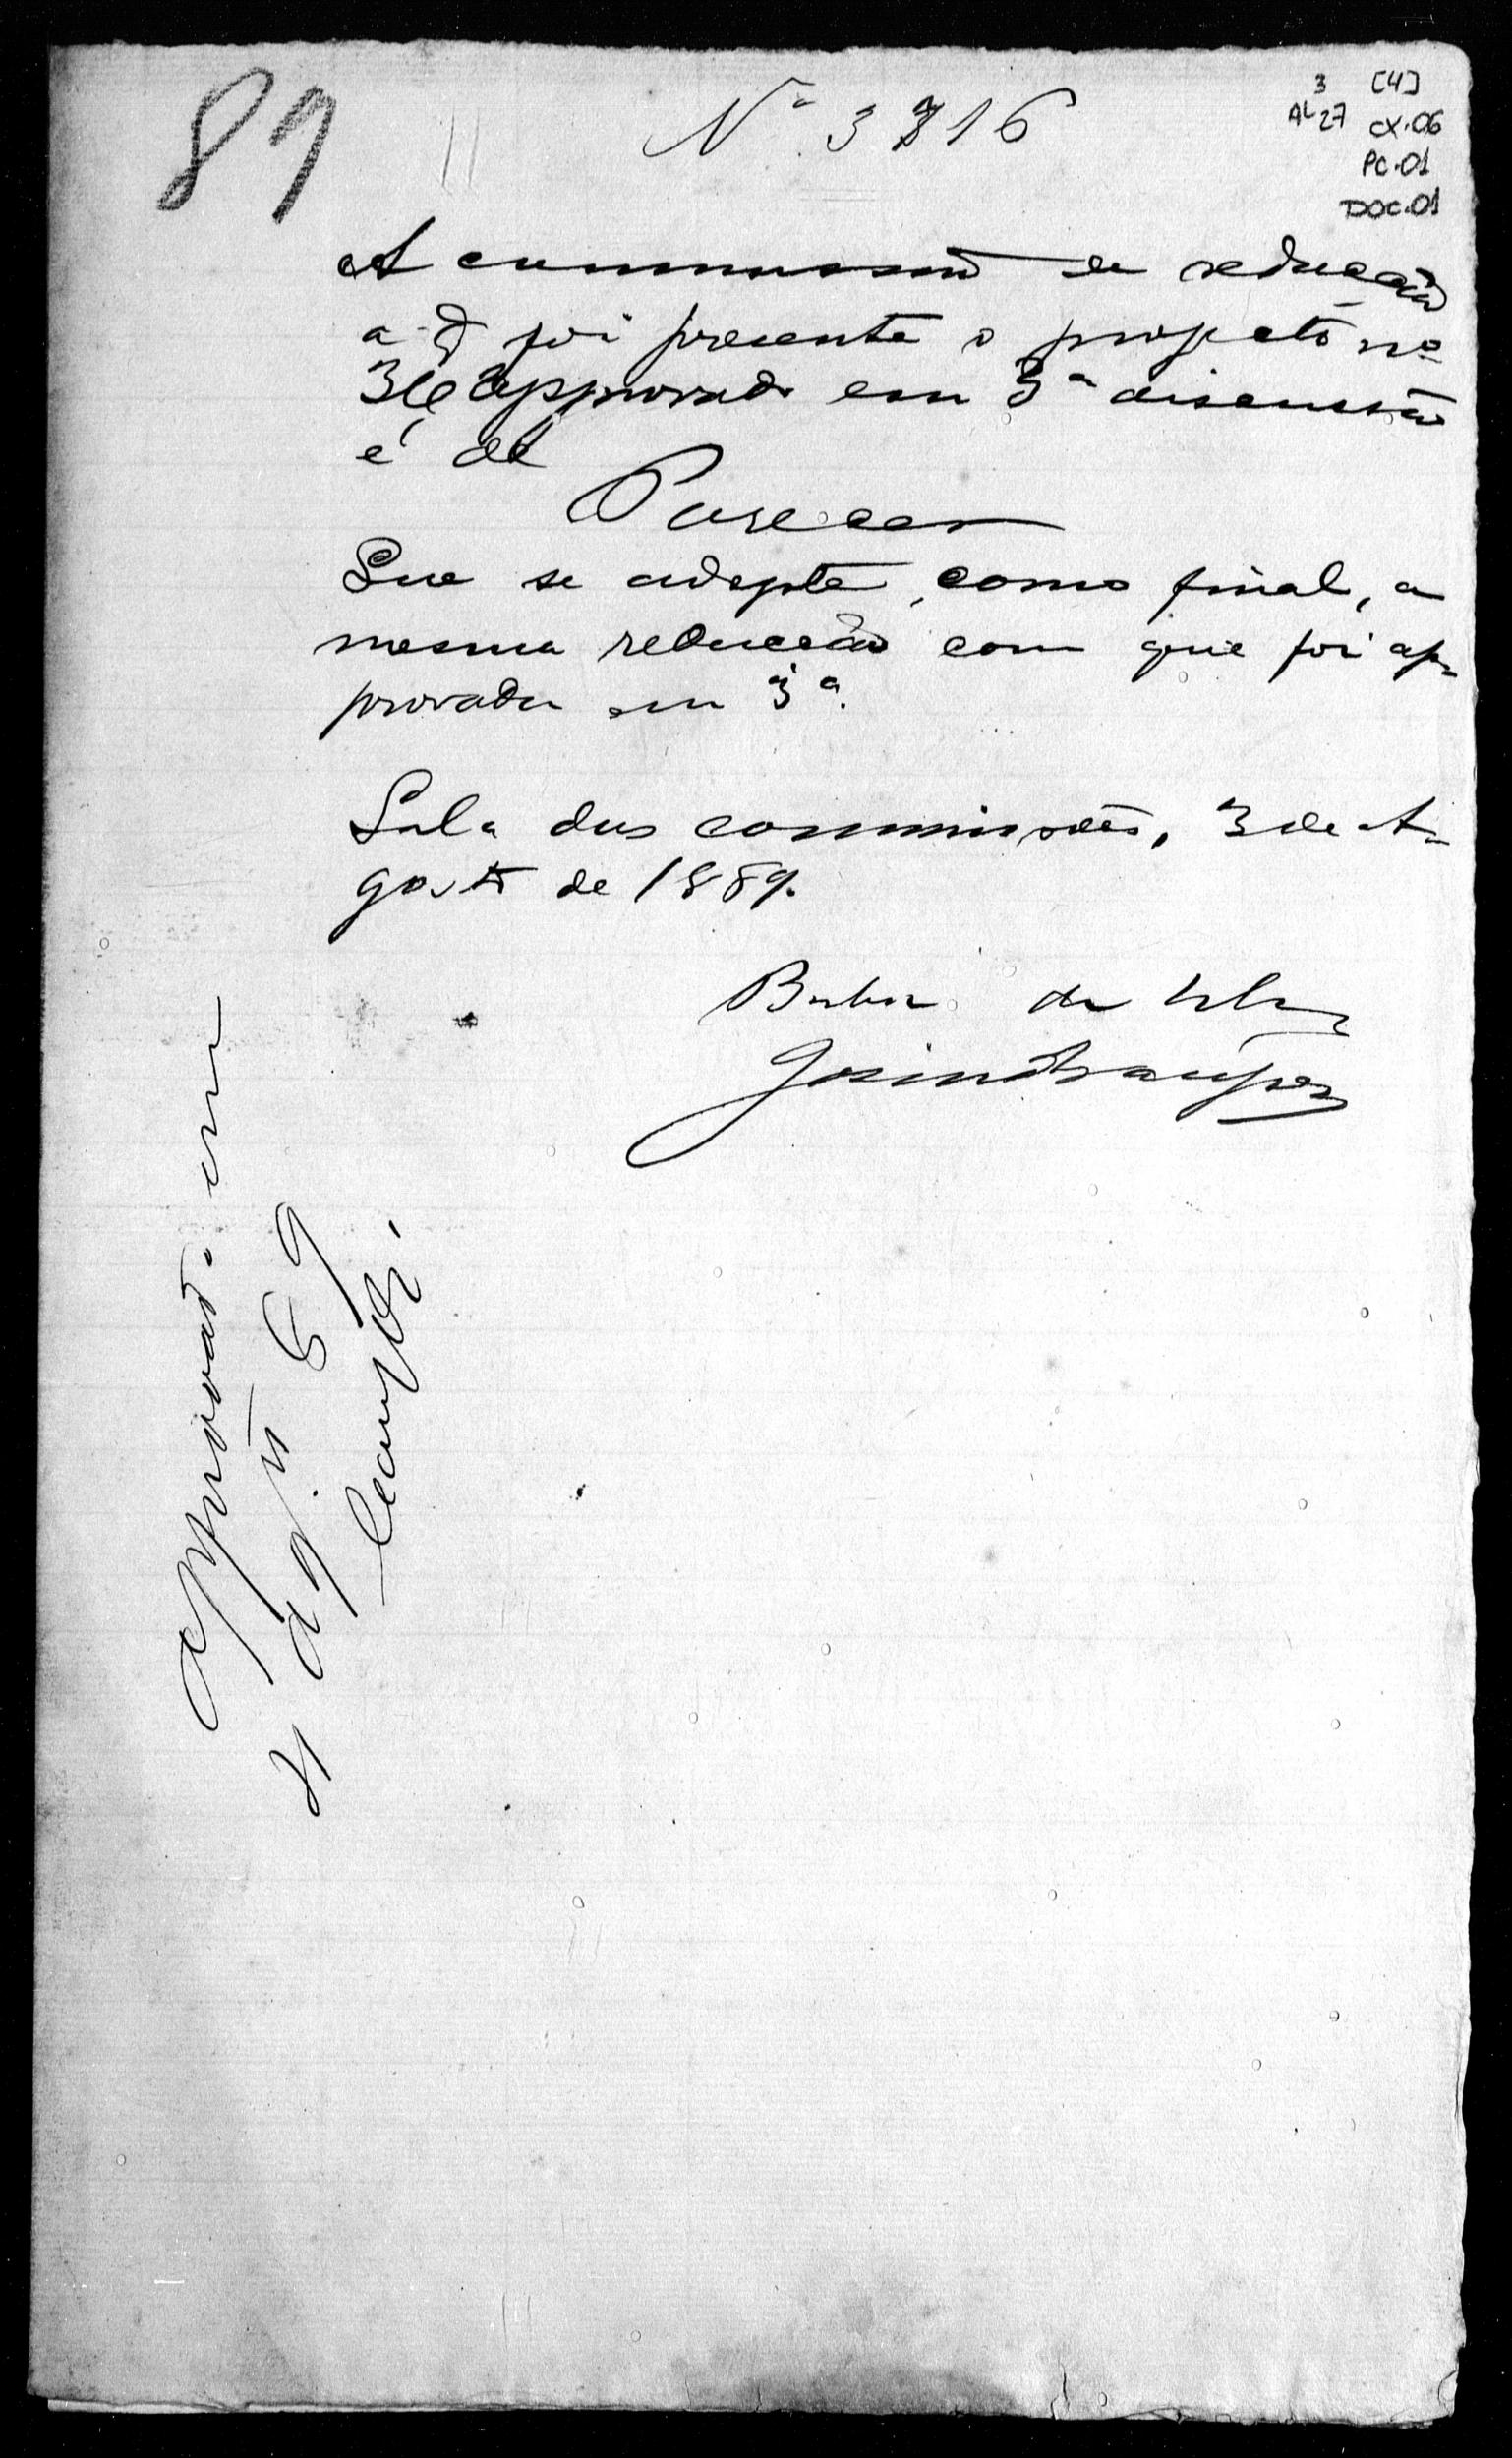 89
Nº 3716
3 [4]
AL27 CX.06
PC.01
DOC.01
A commissão de redacção
a q̃ foi presente o projecto nº
316 approvado em 3ª discussão
é de
Parecer
Que se adopte, como final, a
mesma redacção com que foi ap-
provada em 3ª.
Sala das commissões, 3 de A-
gosto de 1889.
da
approvado em
agto 89